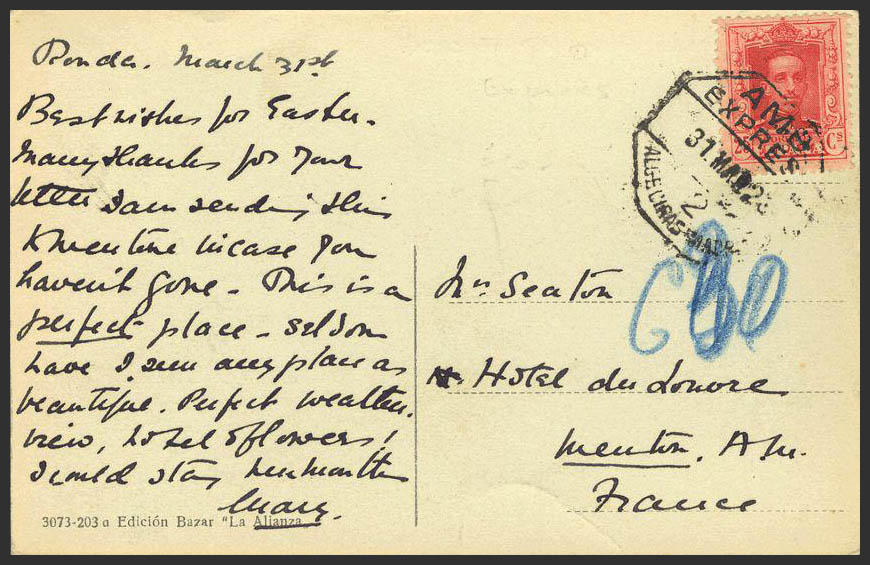 Ronda. March 31st
Best wishes for Easter.
Many thanks for your
letter I am sending this
to Mentone in case you
haven't gone - This is a
perfect place - seldom
have I seen any place as
beautiful. Perfect weather,
view, hotel & flowers!
I could stay here months
Mary.
3073-203 a Edición Bazar "La Alianza
AMB
EXPRES
31 MAR 2
2
ALGECIRAS-MADR
Cs
Mrs Seaton
Hotel du Louvre
Menton. A.M.
France